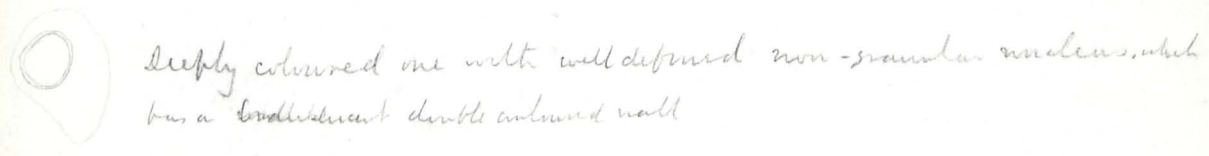 Deeply coloured one with well defined non-granular nucleus, which
has a double coloured wall